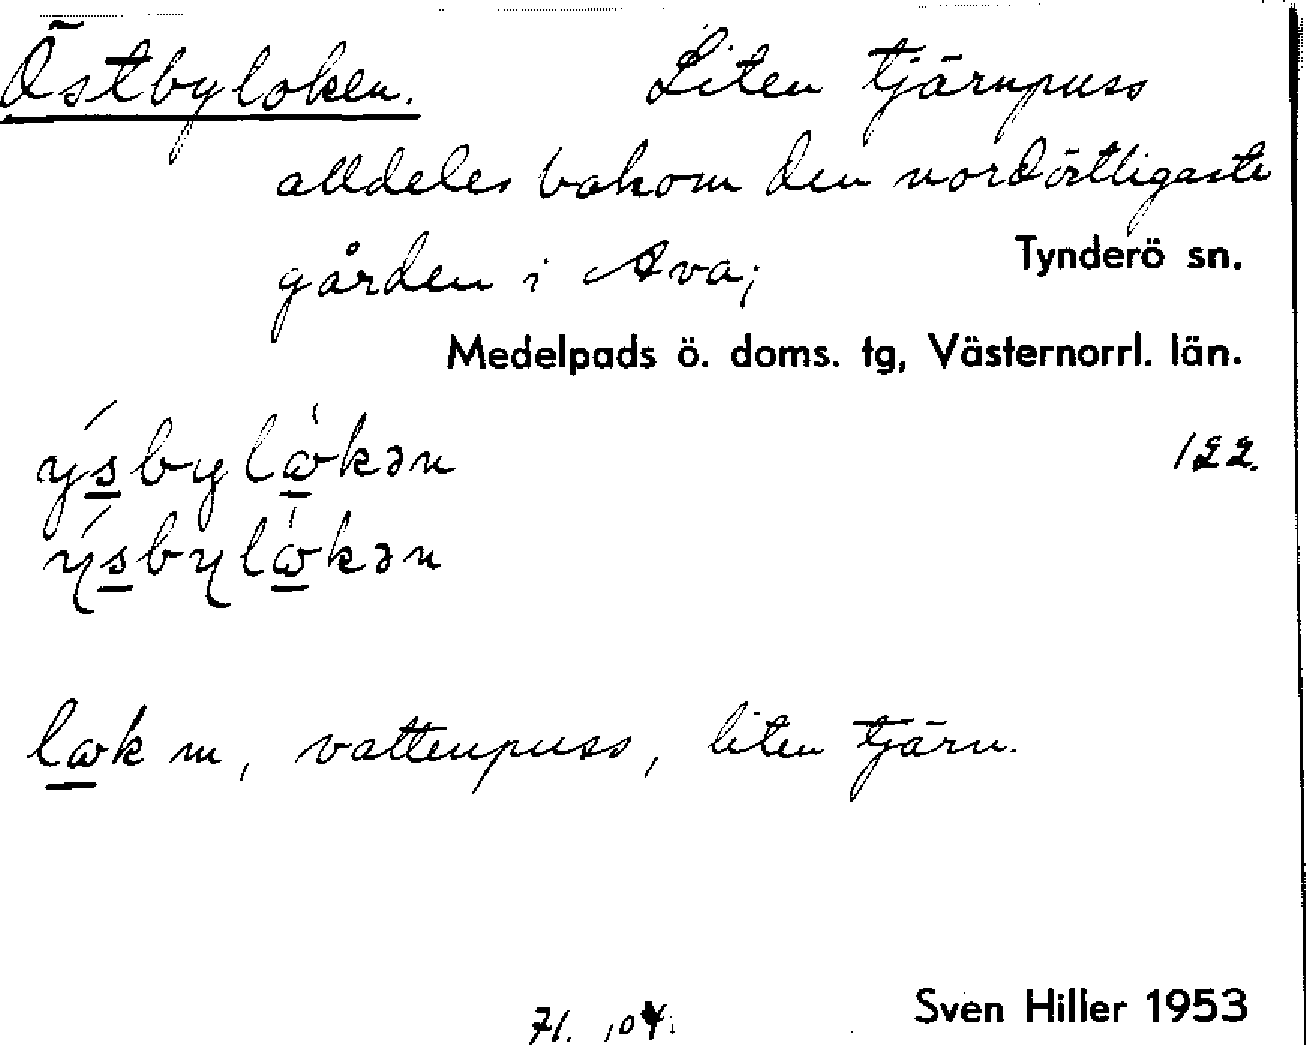 Östbyloken. Liten tjärnpuss
alldeles bakom den nordöstligaste
gården i Ava; Tynderö sn.
Medelpads ö. doms. tg, Västernorrl. län.
ýs̲bylὼ̲kən 122.
ýs̲bylὼ̲kən
lω̲k m, vattenpuss, liten tjärn.
71. 104. Sven Hiller 1953